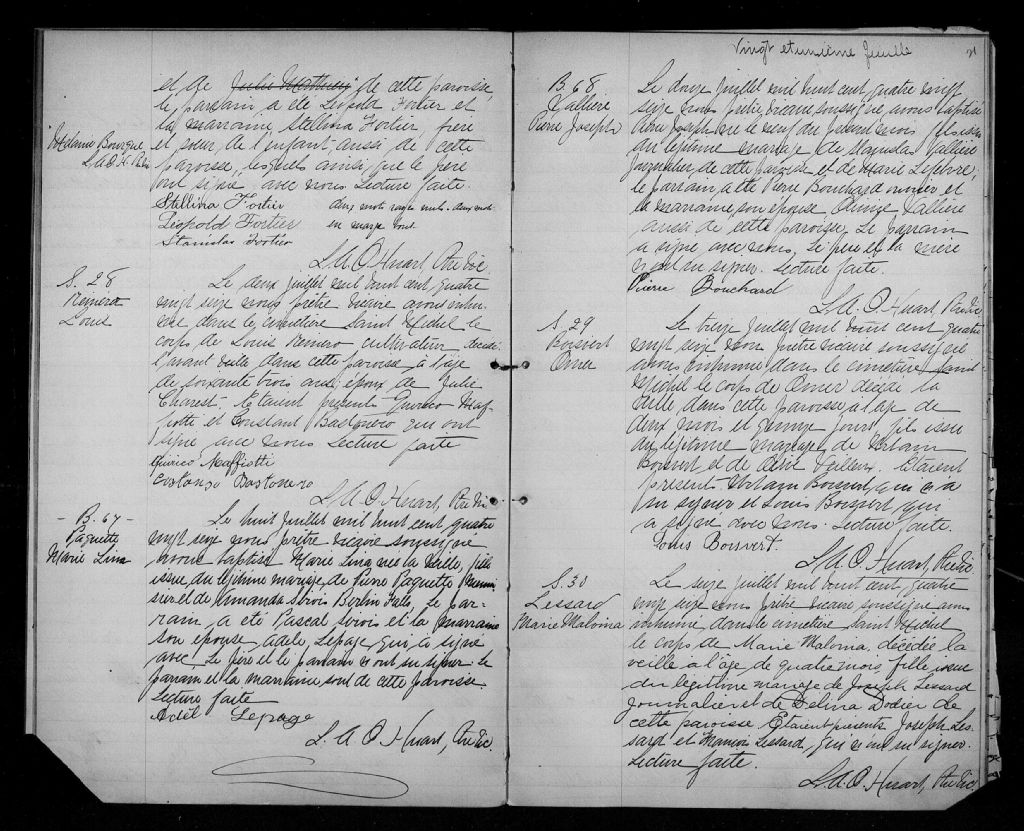 et de Julie Mathieu de cette paroisse,
le parrain a été Léopold Fortier et
la marraine, Stellina Fortier, frère
et soeur de l'enfant aussi de cette
paroisse, lesquels ainsi que le père
ont signé avec nous Lecture faite.
Mélanie Bourque
L.A.O.H. Ptre
Stellina Fortier
deux mots rayés nuls. deux mots
Léopold Fortier
en marge bons
Stanislas Fortier
L.A.O. Huart, Ptre Vic
S. 28
Louis
Le deux juillet mil huit cent quatre
vingt seize nous prêtre vicaire avons inhu-
mé dans le cimetière Saint Michel le
corps de Louis cultivateur décédé
l'avant veille dans cette paroisse à l'âge
de soixante trois ans, époux de Julie
Charest. Etaient présents Quirico Maf-
fiotti et Constant Bastonero qui ont
signé avec nous Lecture faite
Quirico Maffiotti
Costanzo Bastonero
L.A.O. Huart, Ptre Vic
- B. 67 -
Paquette
Marie Lina
Le huit juillet mil huit cent quatre
vingt seize nous prêtre vicaire soussigné
avons baptisé Marie Lina née la veille, fille
issue du légitime mariage de Pierre Paquette
et de Amanda Sirois Berlin Falls, Le par-
rain a été Pascal Sirois et la marraine
son épouse Adèle Lepage qui a signé
avec. Le père et le parrain n'ont su signer. Le
parrain et la marraine sont de cette paroisse.
Lecture faite
Adèl Lepage
L.A.O. Huart, Ptre Vic.
Vingt et unième feuille
21
B. 68
Vallière
Pierre Joseph
Le douze juillet mil huit cent quatre vingt
seize nous prêtre vicaire soussigné avons baptisé
Pierre Joseph né le neuf du présent mois fils issu
du légitime mariage de Stanislas Vallière
journalier de cette paroisse et de Marie Lefebvre,
le parrain a été Pierre Bouchard ouvrier et
la marraine son épouse Vallière
aussi de cette paroisse. Le parrain
a signé avec nous, Le père et la mère
n'ont su signer. Lecture faite.
Pierre Bouchard
L.A.O. Huart, Ptre Vic
S. 29
Boisvert
Omer
Le treize juillet mil huit cent quatre
vingt seize nous prêtre vicaire soussigné
avons inhumé dans le cimetière Saint
Michel le corps de Omer décédé la
veille dans cette paroisse à l'âge de
deux mois et quinze jours, fils issu
du légitime mariage de
Boisvert et de Veilleux. Etaient
présents Boisvert, qui n'a
pu signer et Louis Boisvert qui
a signé avec nous. Lecture faite.
Louis Boisvert.
L.A.O. Huart, Ptre Vic
S. 30
Lessard
Marie Malvina
Le seize juillet mil huit cent quatre
vingt seize nous prêtre vicaire soussigné avons
inhumé dans le cimetière Saint Michel
le corps de Marie Malvina, décédée la
veille à l'âge de quatre mois, fille issue
du légitime mariage de Joseph Lessard
journalier et de Délina Dodier de
cette paroisse. Etaient présents Joseph Les-
sard et Lessard, qui n'ont su signer.
Lecture faite.
L.A.O. Huart, Ptre Vic.